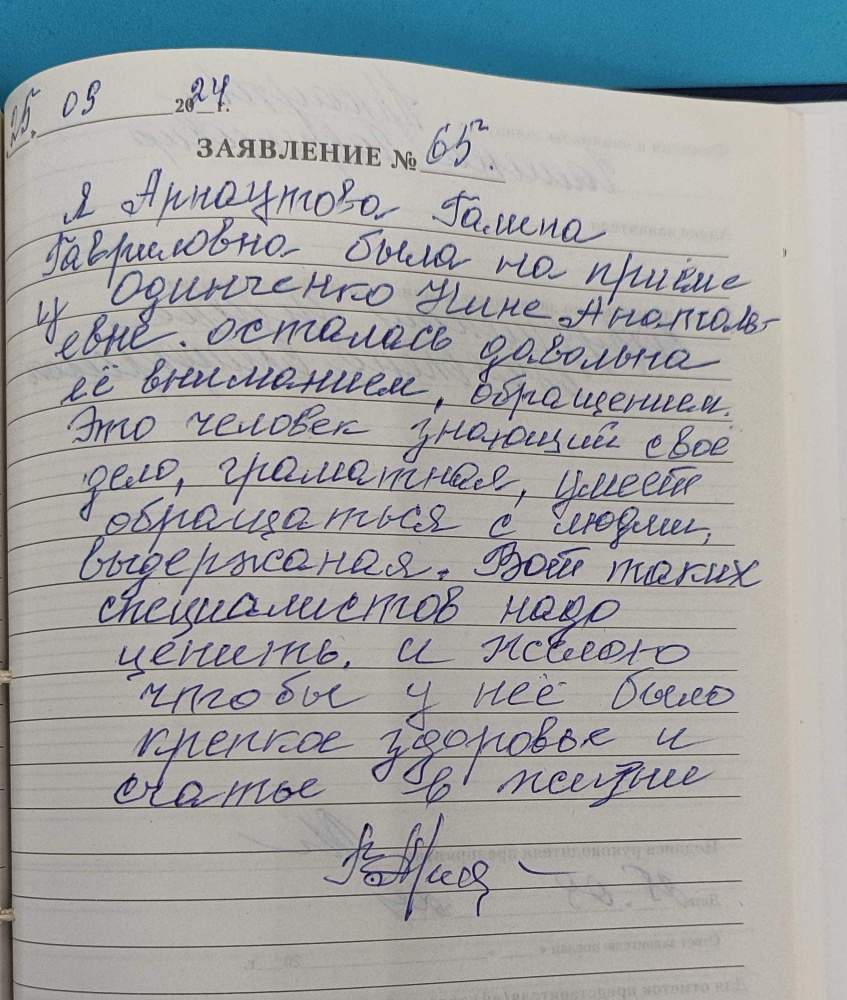 25. 09 2024 г.
ЗАЯВЛЕНИЕ № 65
Я Арнаутова Галина
Гавриловна была на приёме
у Одинченко Нине Анатоль-
евне. осталась давольна
её вниманием, обращением.
Это человек знающий своё
дело, граматная, умеет
обращаться с людми,
выдержаная. Вот таких
специалистов надо
ценить. и желаю
чтобы у неё было
крепкое здоровье и
счатье в жизни